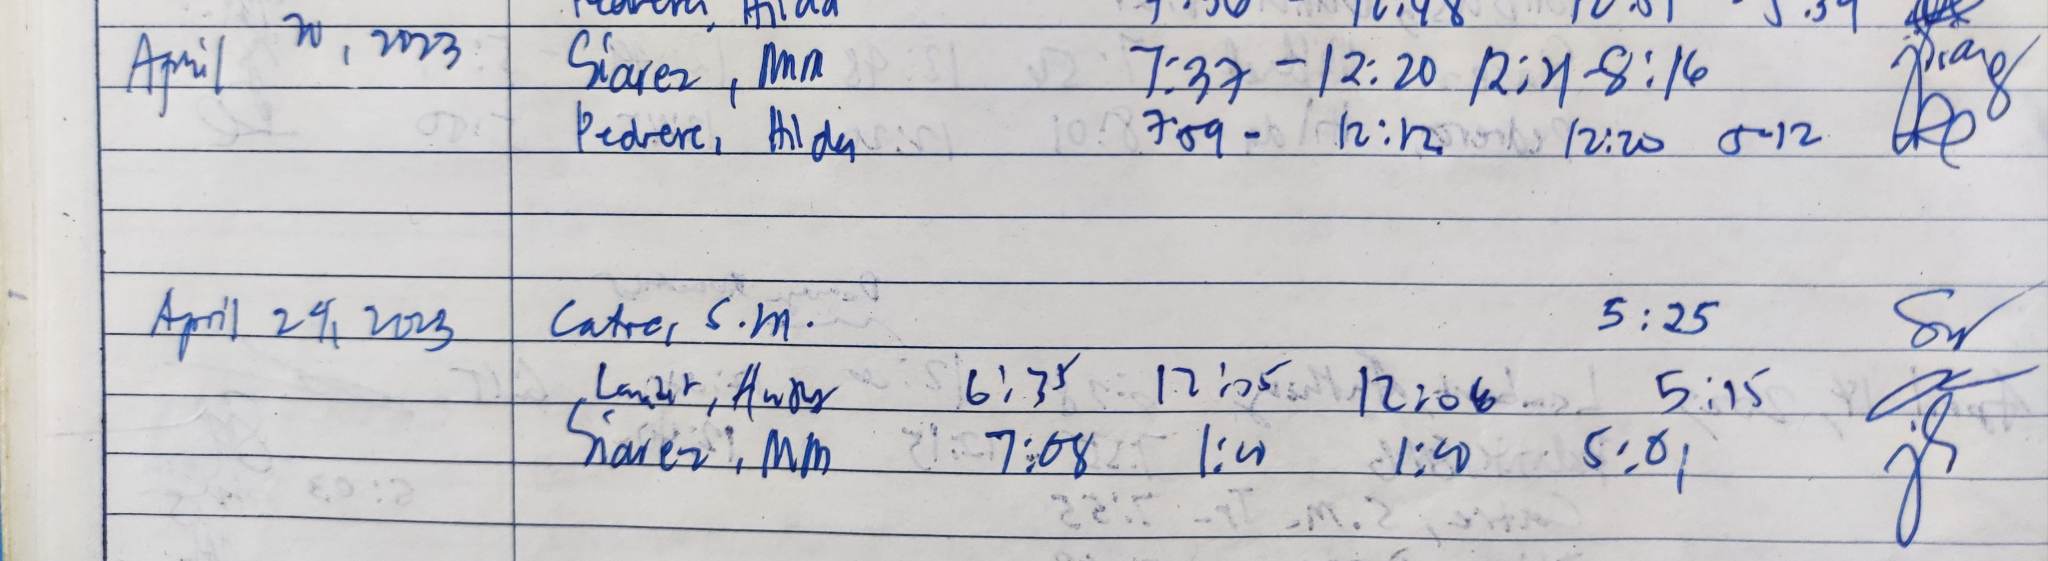 Hilda
April 20, 2023 Siarez, MM 7:37 - 12:20 12:21 - 8:16
Pedrere, Hilda 7:59 - 12:12 12:20 5:12
April 24, 2023 Catre, S.M. 5:25
6:35 12:05 12:06 5:15
Siarez, MM 7:08 1:20 1:20 5:01